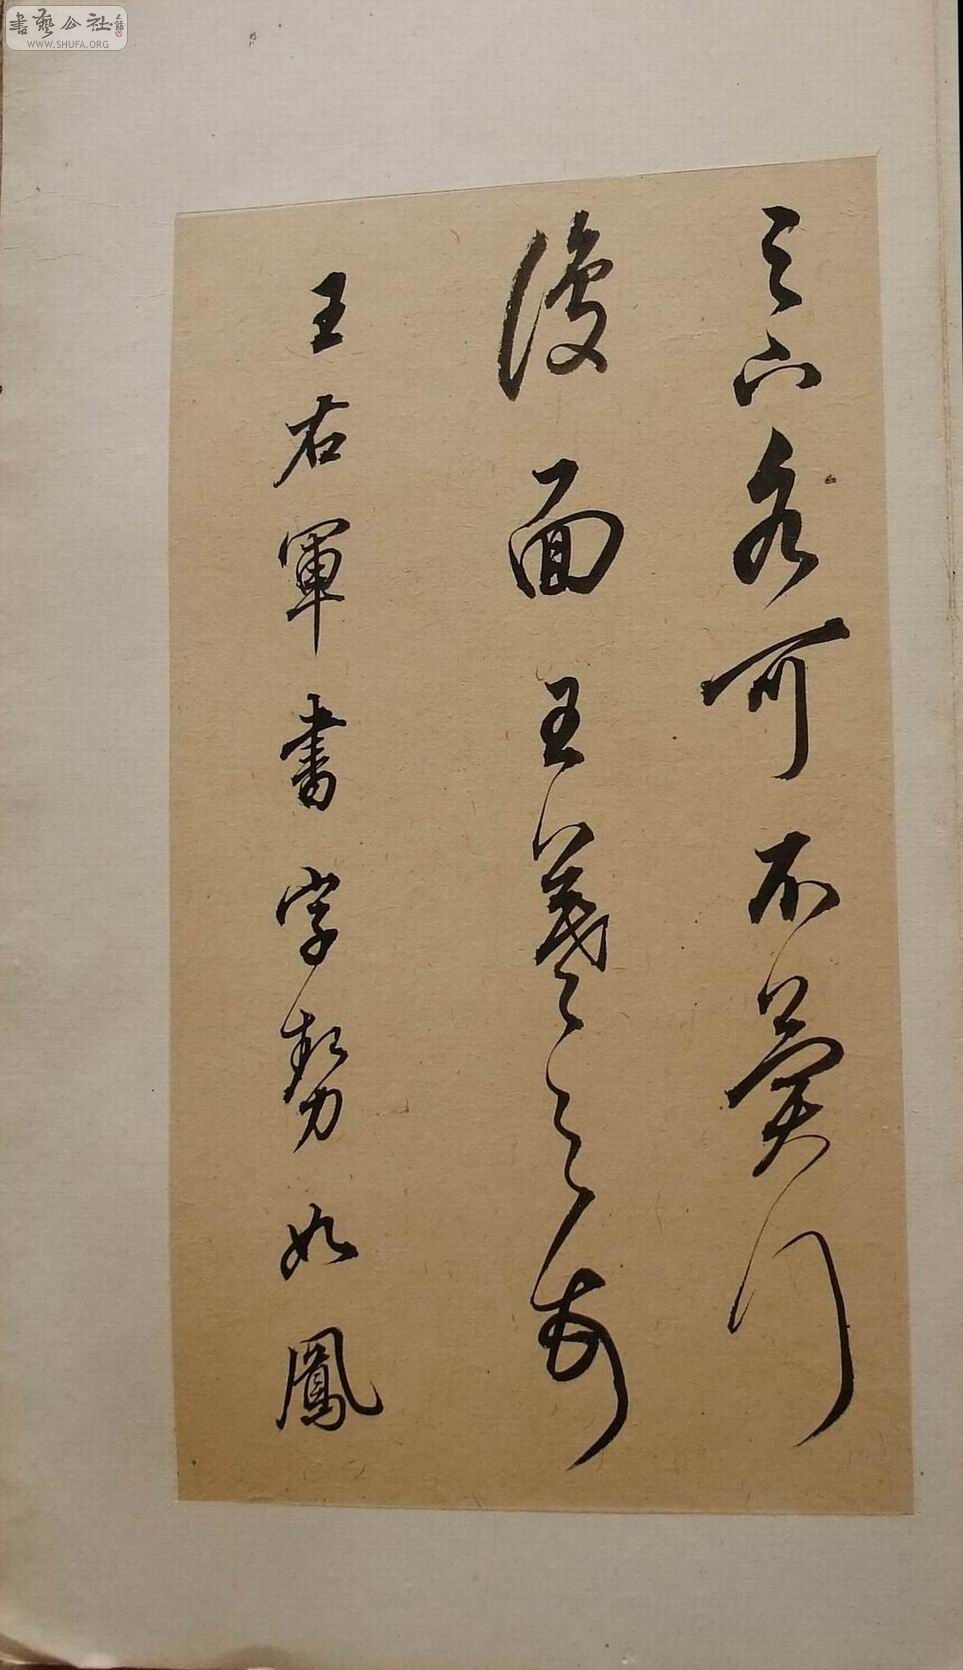 書藝公社
WWW.SHUFA.ORG
可不
後面王羲之前
王右軍書字勢如鳳